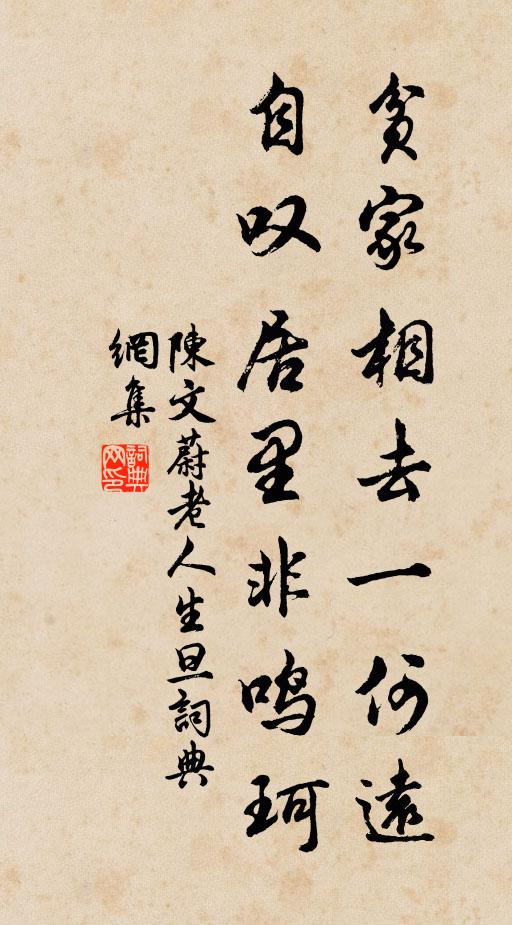 貧家相去一何遠
自叹居里非鳴珂
陳文蔚老人生旦詞典
網集
詞典
网印